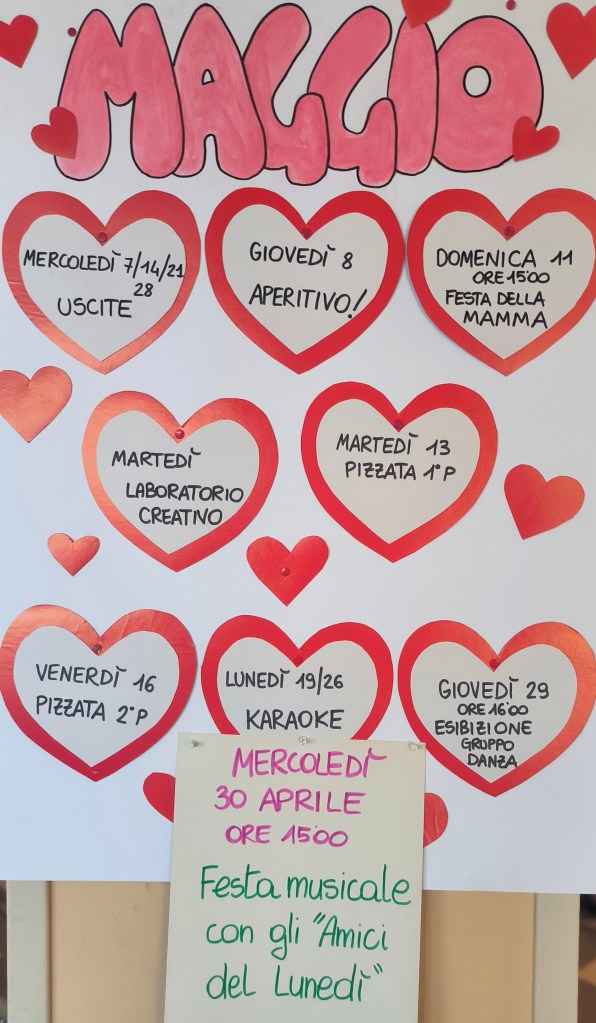 MAGGIO
MERCOLEDÌ 7/14/21
28
USCITE
GIOVEDÌ 8
APERITIVO!
DOMENICA 11
ORE 15:00
FESTA DELLA
MAMMA
MARTEDÌ
LABORATORIO
CREATIVO
MARTEDÌ 13
PIZZATA 1°P
VENERDÌ 16
PIZZATA 2°P
LUNEDÌ 19/26
KARAOKE
GIOVEDÌ 29
ORE 16:00
ESIBIZIONE
GRUPPO
DANZA
MERCOLEDÌ
30 APRILE
ORE 15:00
Festa musicale
con gli "Amici
del Lunedì"